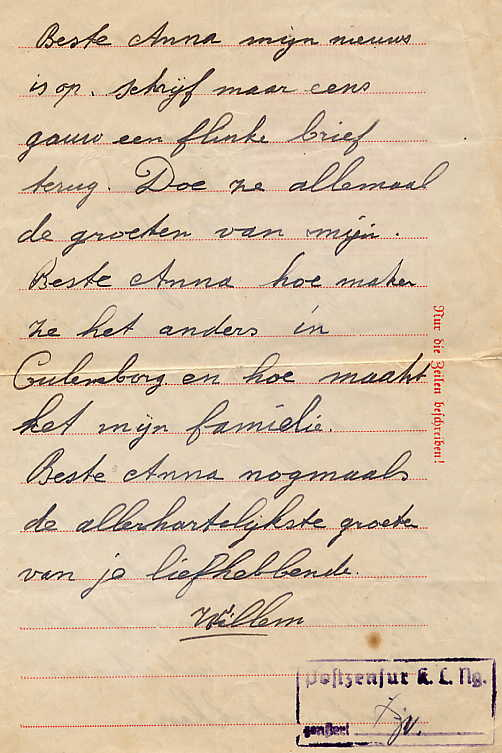 Beste Anna mijn nieuws
is op. schrijf maar eens
gauw een flinke brief
terug. Doe ze allemaal
de groeten van mijn.
Beste Anna hoe maken
ze het anders in
Culemborg en hoe maakt
het mijn familie.
Beste Anna nogmaals
de allerhartelijkste groete
van je liefhebbende.
Willem
Nur die Zeilen beschreiben!
Postzensur K. L. Ng.
zensiert